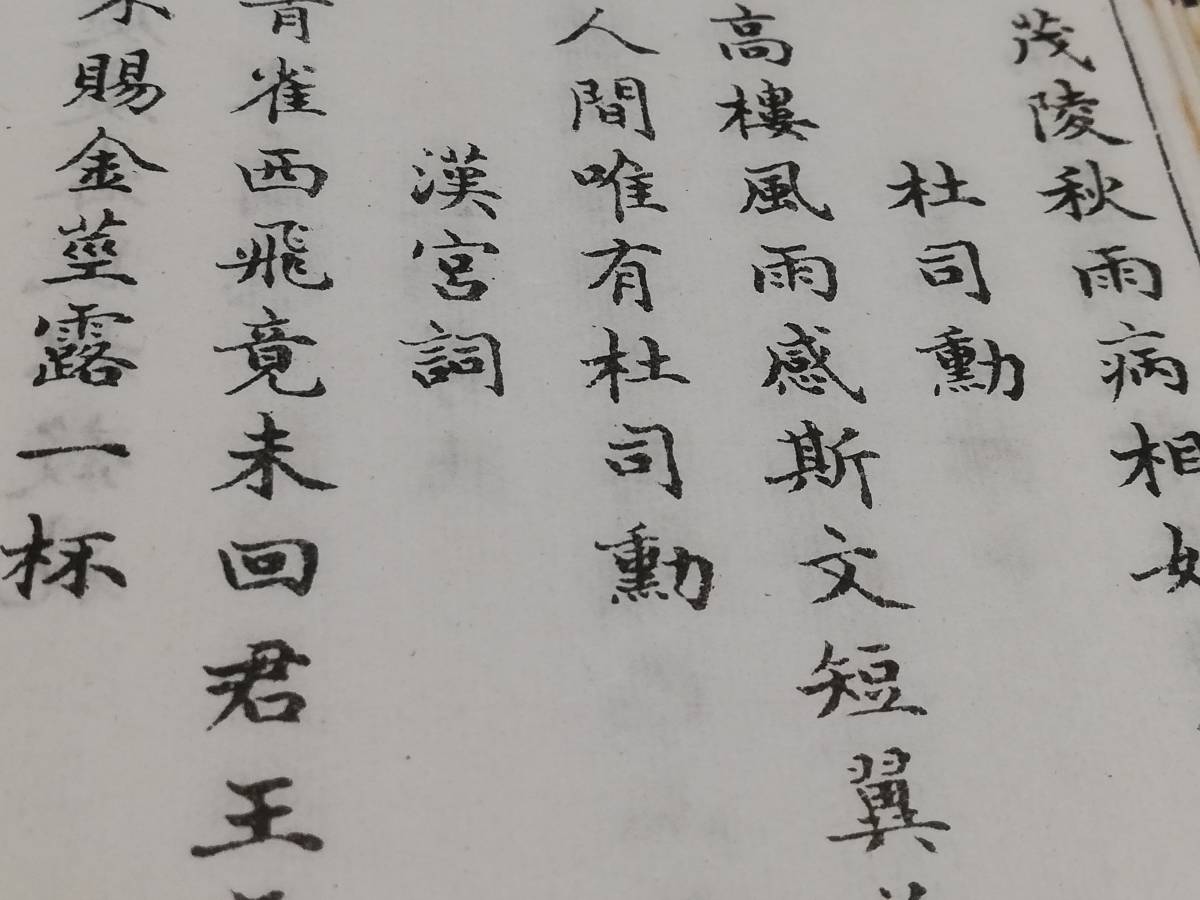 茂陵秋雨病相如
杜司勳
高樓風雨感斯文短翼
人間唯有杜司勳
漢宮詞
青雀西飛竟未回君王
賜金莖露一杯